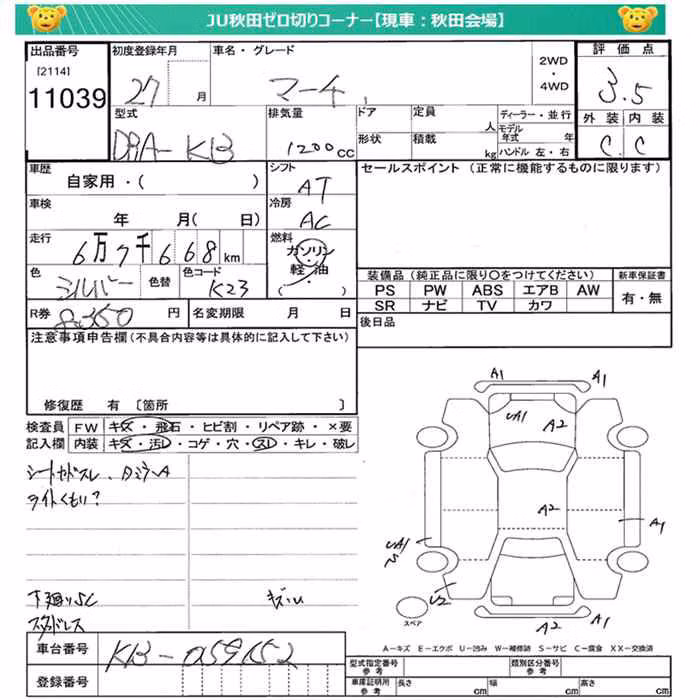 JU秋田ゼロ切りコーナー【現車：秋田会場】
出品番号 初度登録年月 車名・グレード 2WD ・ 4WD 評価点
[2114]
11039 27 月 マーチ 3.5
型式 排気量 ドア 定員 人 ディーラー・並行 外装 内装
DBA-K13 1200cc 形状 積載 kg モデル年式 年 C C
ハンドル 左・右
車歴 シフト セールスポイント（正常に機能するものに限ります）
自家用・（ ） AT
車検 冷房
年 月（ 日） AC
走行 燃料
6万7千668km ガソリン・軽油
（ ・ ）
色 色替 色コード 装備品（純正品に限り○をつけてください） 新車保証書
シルバー K23 PS PW ABS エアB AW 有・無
SR ナビ TV カワ
R券 8,350 円 名変期限 月 日 後日品
注意事項申告欄（不具合内容等は具体的に記入して下さい）
修復歴 有〔箇所 〕
検査員 FW キズ・飛石・ヒビ割・リペア跡・×要
記入欄 内装 キズ・汚レ・コゲ・穴・スレ・キレ・破レ
ライトくもり?
下廻りSC
スタッドレス
A1 A1
UA1 A2
A2
A1
UA1
U2
A2 A1
スペア
A－キズ E－エクボ U－凹み W－補修跡 S－サビ C－腐食 XX－交換済
車台番号 K13-059152 型式指定番号 参考 類別区分番号 参考
登録番号 車庫証明用 参考 長さ cm 幅 cm 高さ cm